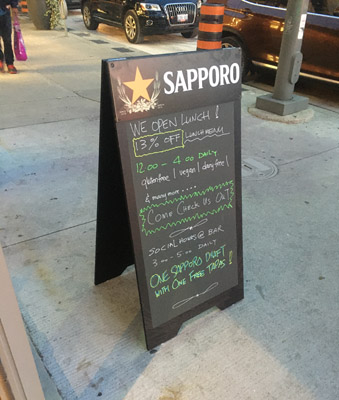 SAPPORO
WE OPEN LUNCH!
13% OFF LUNCH MENU
12:00 - 4:00 DAILY
gluten free | vegan | dairy free |
& many more ....
Come Check Us Out
SOCIAL HOURS @ BAR
3:00 - 5:00 DAILY
ONE SAPPORO DRAFT
WITH ONE FREE TAPAS!